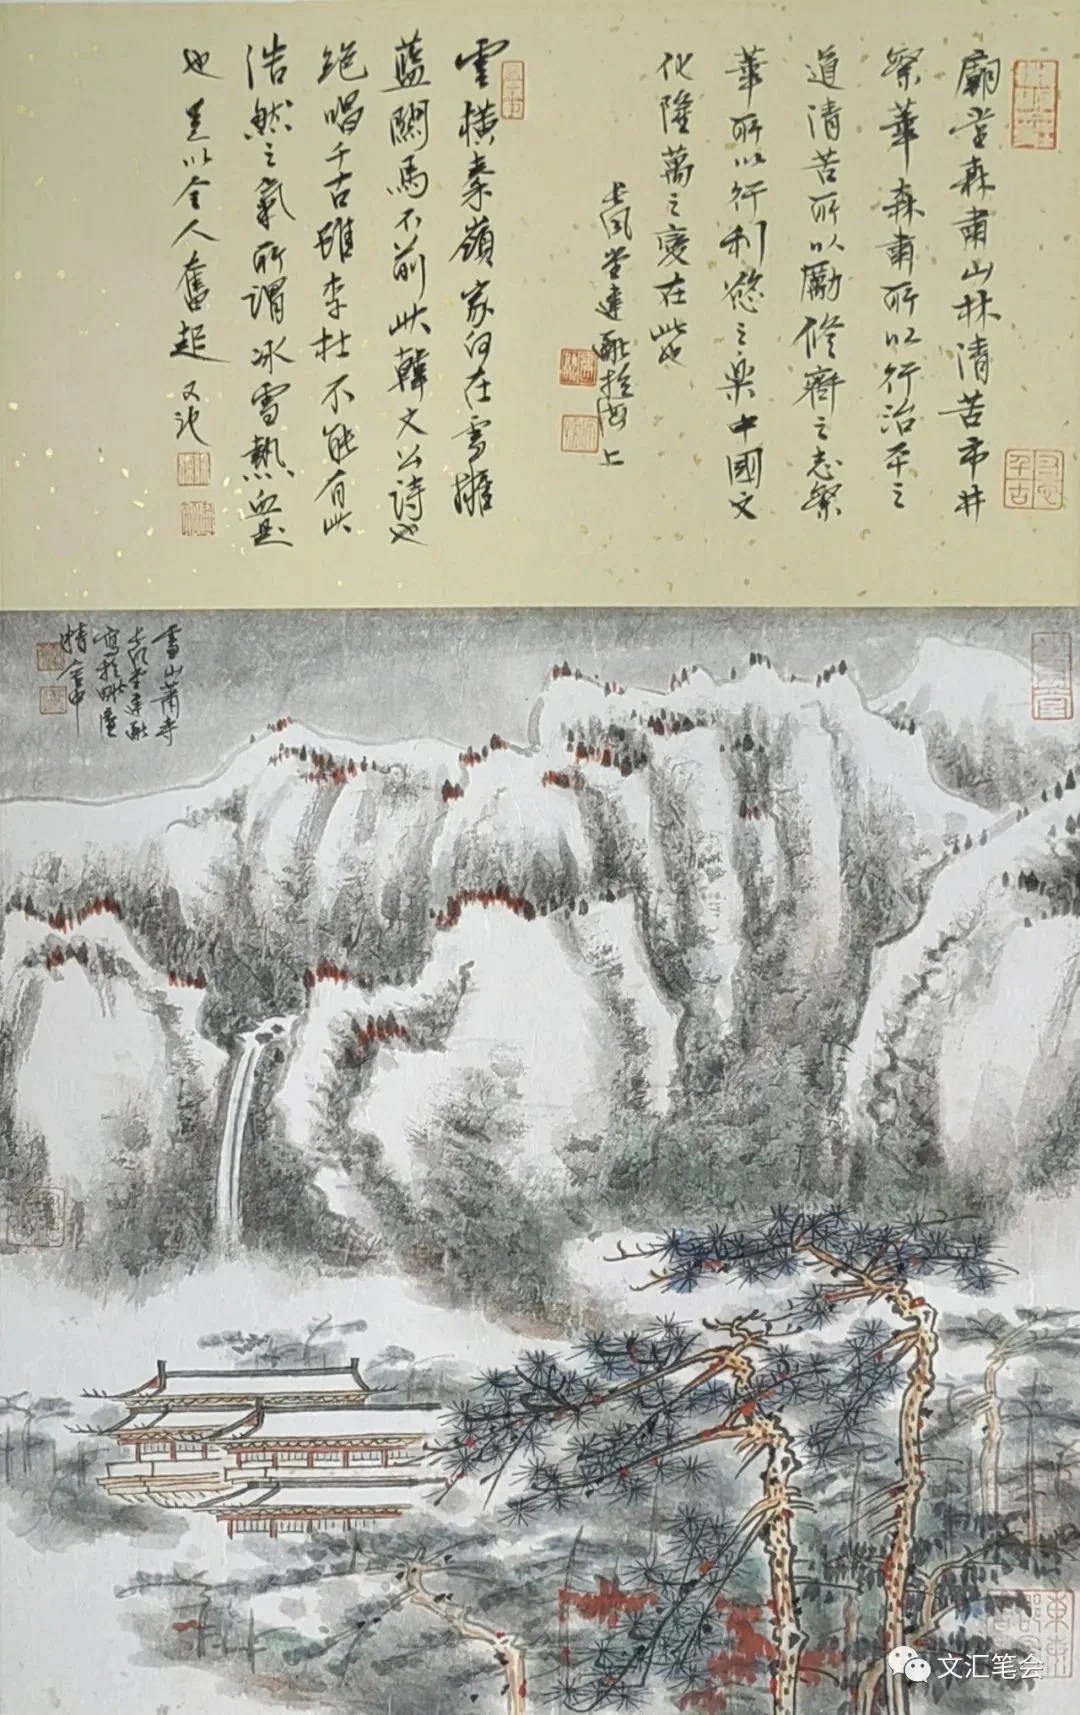 廟堂森肅山林清苦市井
繁華森肅所以行治平之
道清苦所以勵修齊之志繁
華所以行利慾之樂中國文
化隆萬之變在此也
長風堂建融於海上
雲橫秦嶺家何在雪擁
藍關馬不前此韓文公詩也
絕唱千古雖李杜不能有此
浩然之氣所謂冰雪熱血是
也足以令人奮起又記
雪山蕭寺
長風堂建融
寫於毗廬
精舍中
文汇笔会